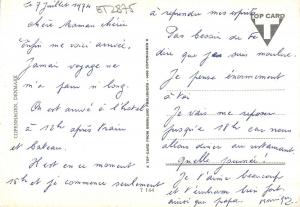 Le 7 Juillet 1974
ET 2875
chère Maman chérie
Enfin me voici arrivée.
Jamais voyage ne
m'a paru si long.
On est arrivé à l'hôtel
à 12h après train
et bateau.
Il est en ce moment
18h et je commence seulement
à reprendre mes esprits
Pas besoin de te
dire que je suis moulue.
Je pense énormément
à toi
Je vais me reposer
jusqu'à 18h car nous
allons dîner au restaurant
quelle journée!
Je t'aime beaucoup
et t'embrasse bien fort
ainsi que papa.
TOP CARD
T
COPENHAGEN, DENMARK
T 144